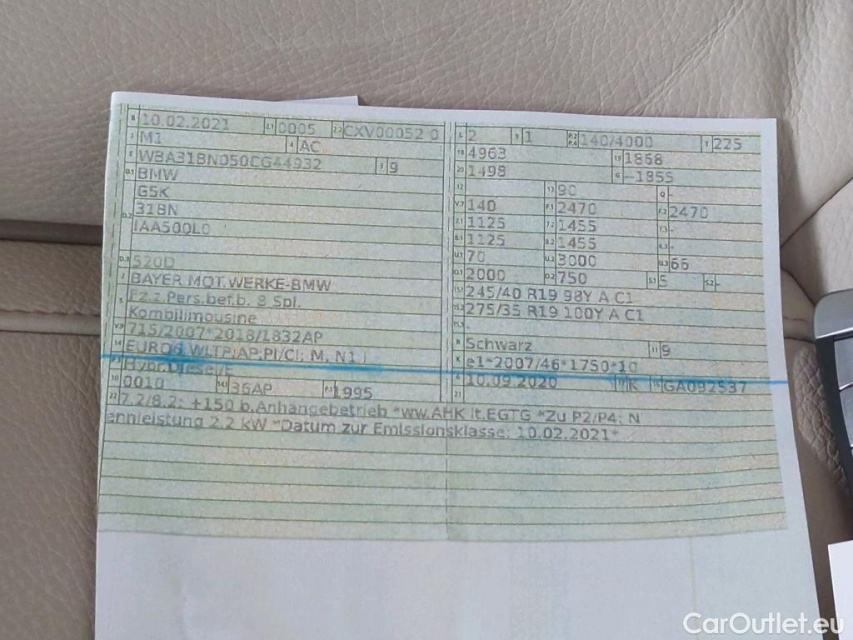 10.02.2021 0005 CXV00052 0
M1 AC
WBA31BN050CG44932 9
BMW
G5K
31BN
IAA500L0
520D
BAYER.MOT.WERKE-BMW
Fz.z.Pers.bef.b. 8 Spl.
Kombilimousine
715/2007*2018/1832AP
EURO6 WLTP;AP;PI/CI; M, N1 I
Hybr.Diesel/E
0010 36AP 1995
2 1 140/4000 225
4963 1868
1498 -1855
90 -
140 2470 2470
1125 1455 -
1125 1455 -
70 3000 66
2000 750 5 -
245/40 R19 98Y A C1
275/35 R19 100Y A C1
-
Schwarz 9
e1*2007/46*1750*10
10.09.2020 K GA092537
7.2/8.2: +150 b.Anhängebetrieb *ww.AHK lt.EGTG *Zu P2/P4: N
ennleistung 2.2 kW *Datum zur Emissionsklasse: 10.02.2021*
CarOutlet.eu